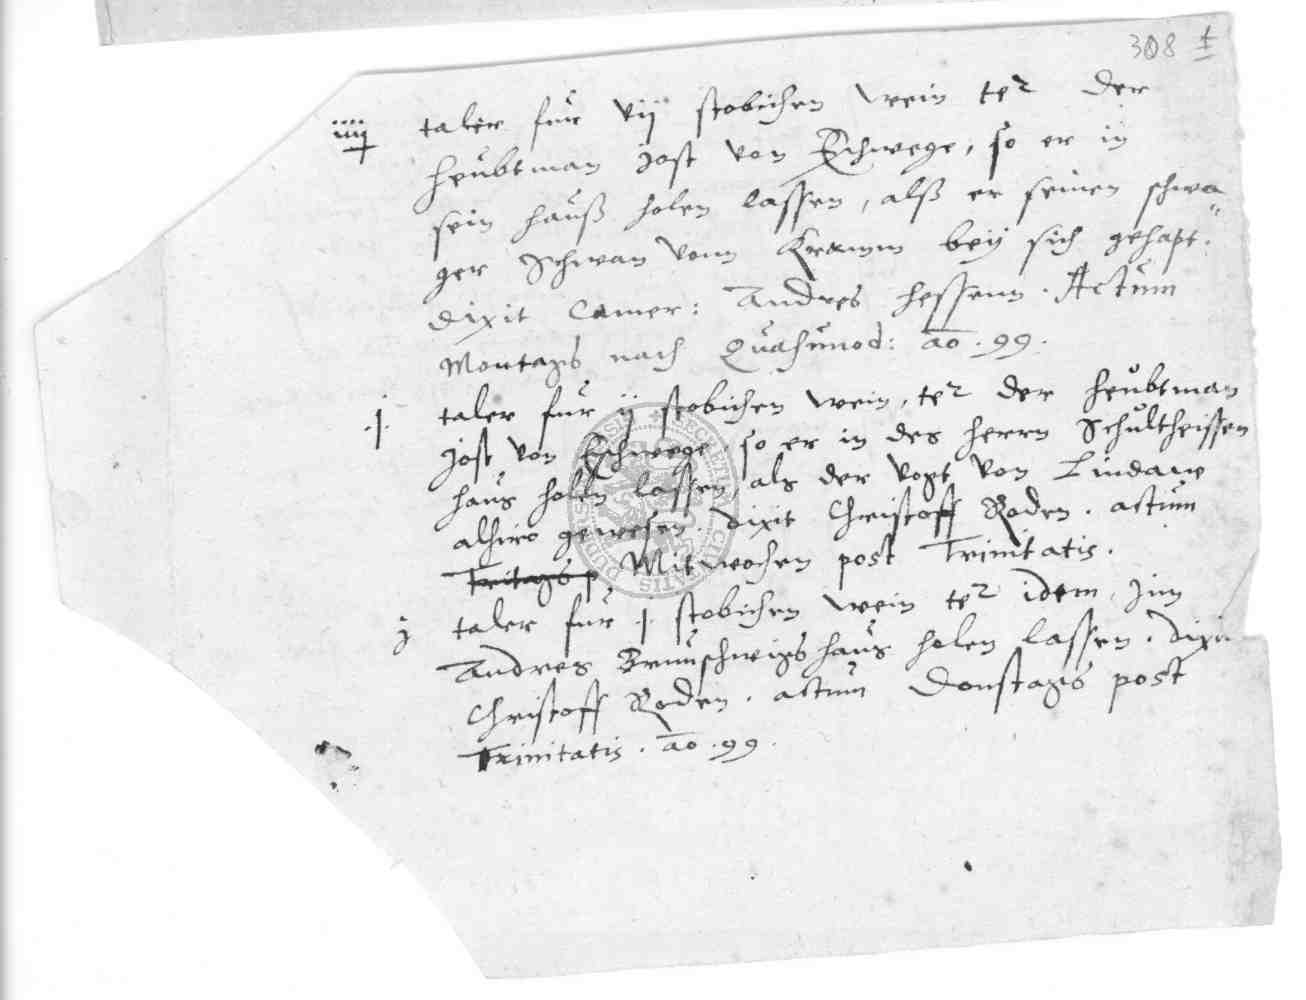 308 1
iiij taler fur vij stobichen wein ter der
heubtman Jost von Eschwege, so er in
sein hauß holen lassen, alß er seinen schwa„
ger Schwan vonn Kramm beÿ sich gehapt.
dixit Camer: Andres Hessenn. Actum
Montags nach Quasimod: ao. 99.
.j. taler fur ij stobichen wein, ter der heubtman
Jost von Eschwege so er in des herrn Schultheissen
haus holen lassen, als der vogt von Lindaw
alhiro gewesen. dixit Christoff Roden. actum
Mitwochen post Trinitatis.
j taler fur .j. stobichen wein ter idem, Jnn
Andres Brunschwigs haus holen lassen. dixit
Christoff Roden. actum Donstags post
Trinitatis. ao. 99.